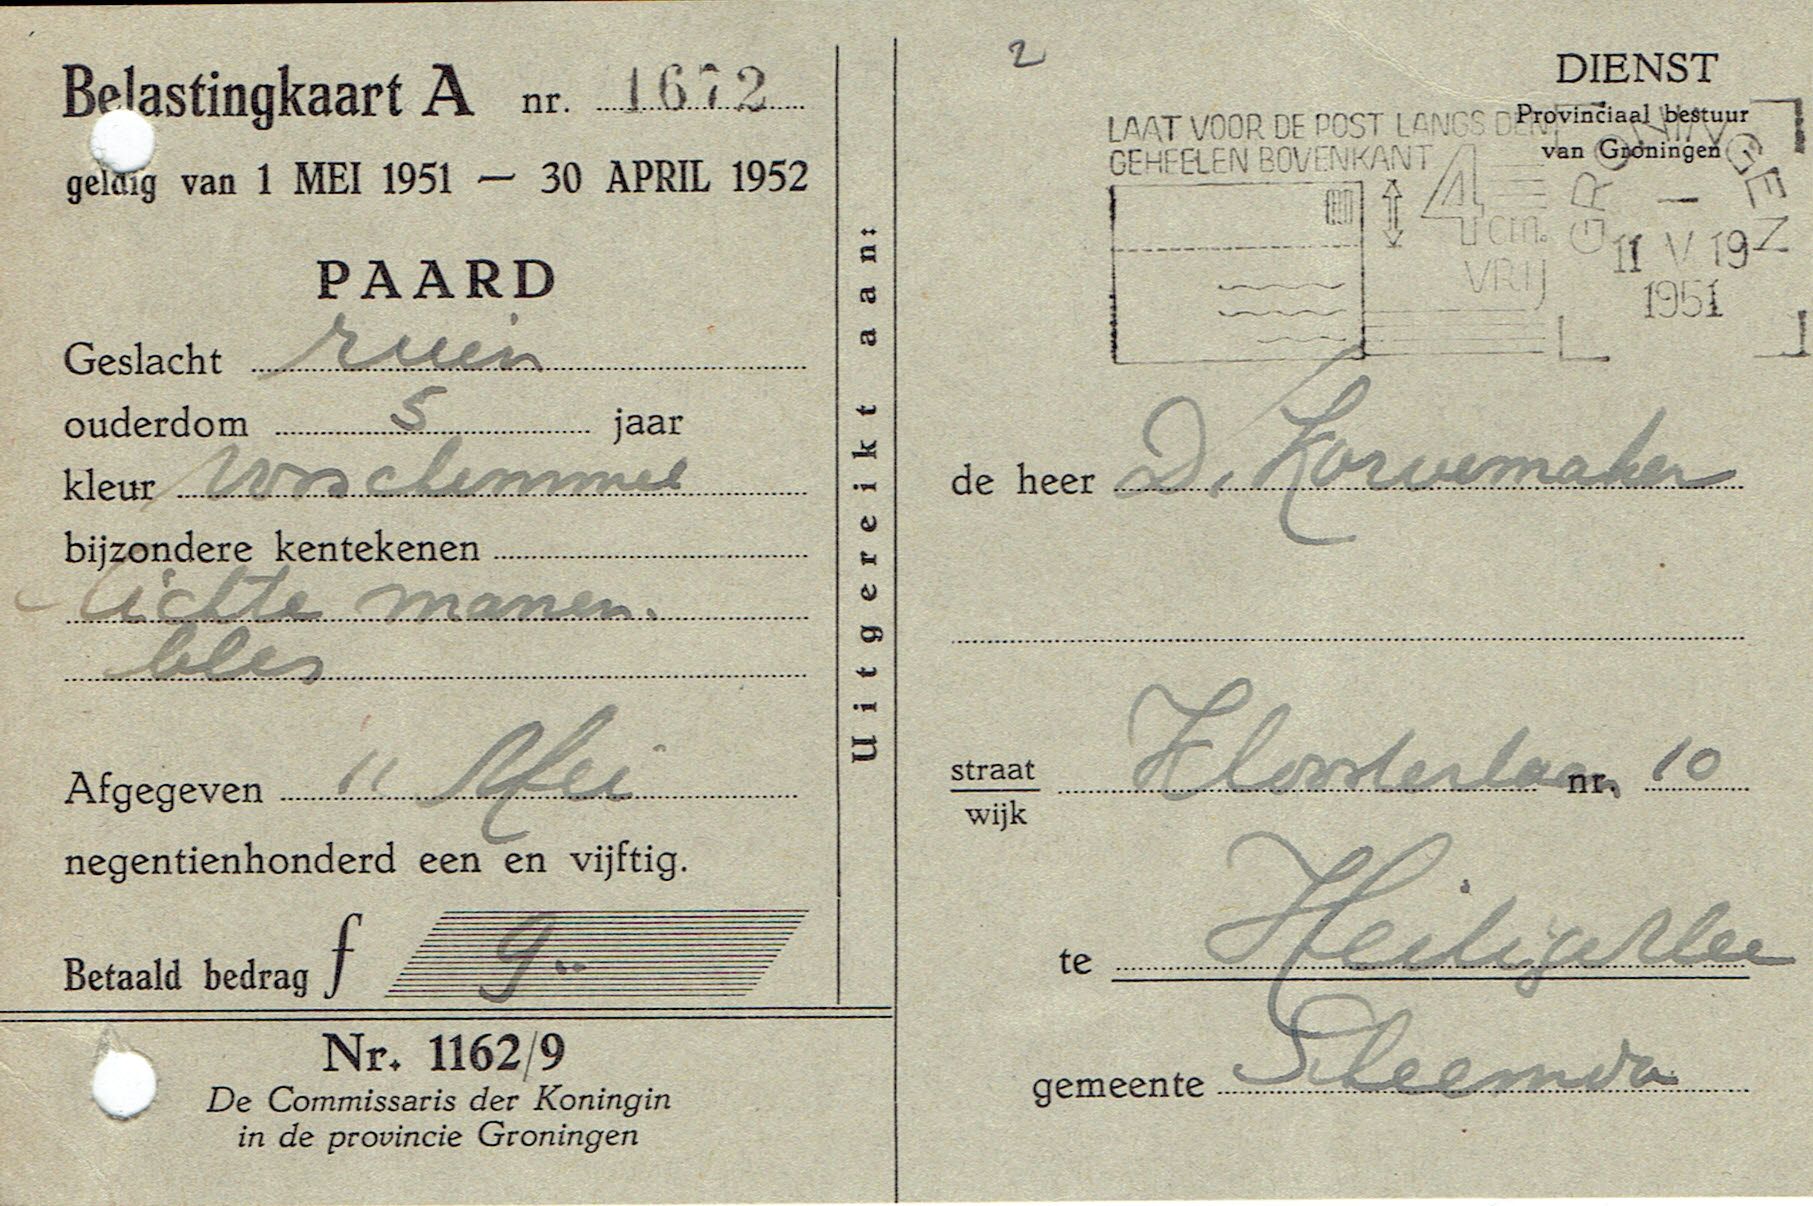 Belastingkaart A nr. 1672
geldig van 1 MEI 1951 — 30 APRIL 1952
PAARD
Geslacht ruin
ouderdom 5 jaar
kleur vosschemmel
bijzondere kentekenen
lichte manen.
bles
Afgegeven 11 Mei
negentienhonderd een en vijftig.
Betaald bedrag f 9..
Nr. 1162/9
De Commissaris der Koningin
in de provincie Groningen
Uitgereikt aan:
2
DIENST
Provinciaal bestuur
van Groningen
LAAT VOOR DE POST LANGS DEN
GEHEELEN BOVENKANT
4 cm.
VRIJ
GRONINGEN
11 V 19
1951
de heer D. Korvemaker
straat
wijk
Kloosterlaan nr. 10
te Heiligerlee
gemeente Scheemda